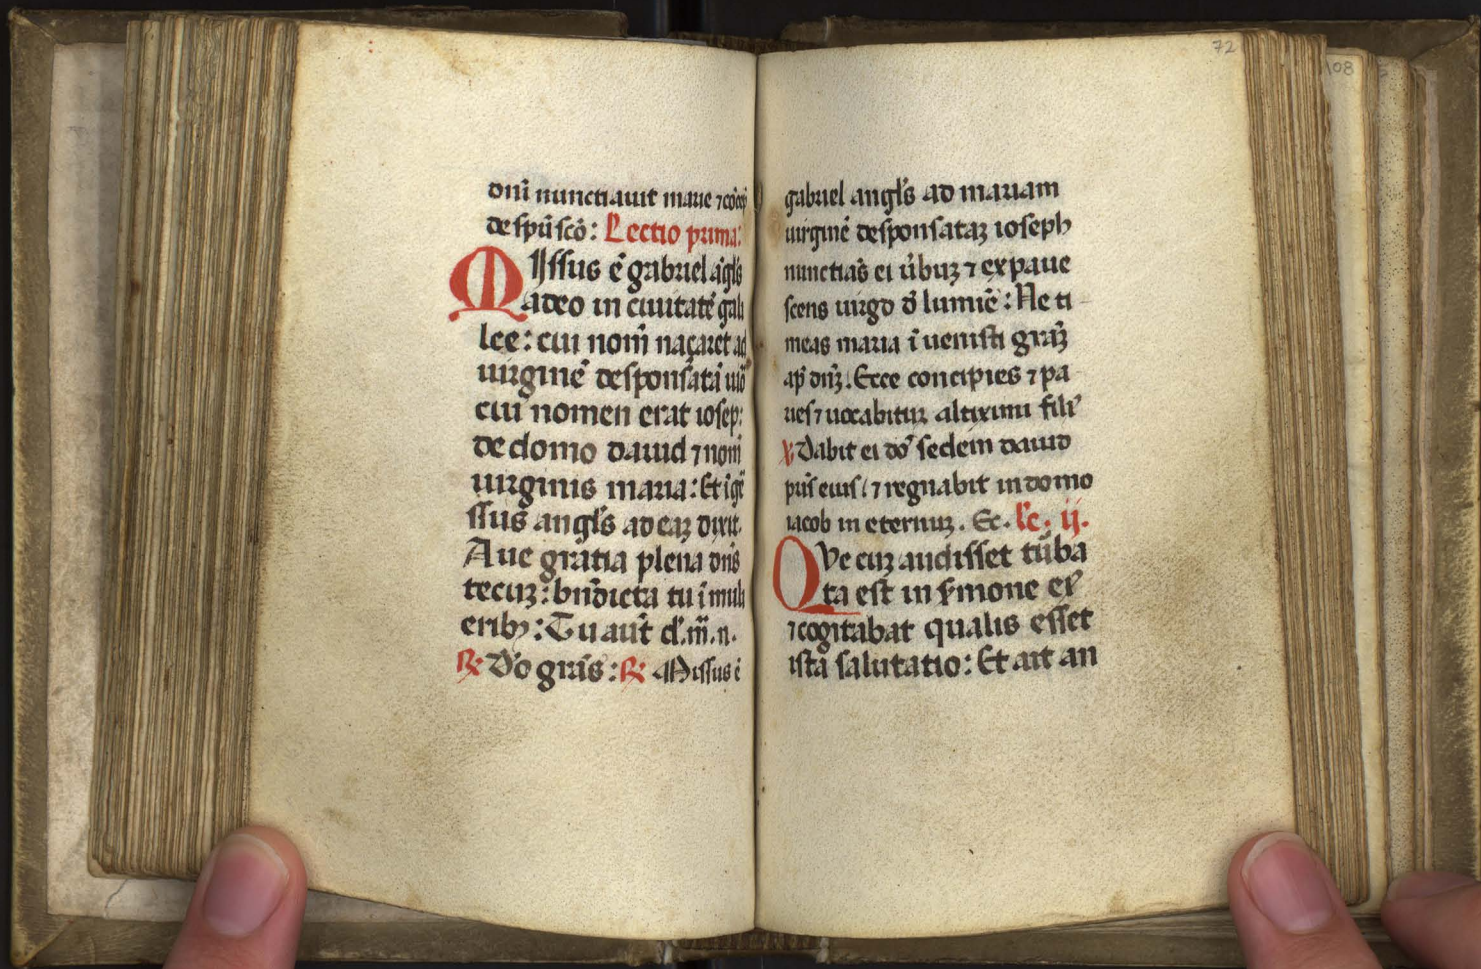 dnı̄ nunctiauit marie ⁊ cōcep̄
de spū scō: Lectio prima:
MIssus ē gabriel āgl̄s
a deo in ciuitatē gali
lee: cui nom̄ naçaret ad
uirginē desponsatā uiō
cui nomen erat iosep:
de domo dauid ⁊ nom̄
uirginis maria: Et ig̃e
ssus angl̄s ad eaꝫ dixit.
Aue gratia plena dn̄s
tecuꝫ: bn̄dicta tu ī muli
erib⁊: Tu aut̄ d̄. m̄. n.
℟ Dō grās: ℟ Missus ē
72
gabriel angl̄s ad mariam
uirginē desponsataꝫ ioseph
nunctiās ei ūbuꝫ ⁊ expaue
scens uirgo d̄ lumiē: Ne ti
meas maria ī uenisti grāꝫ
ap̄ dn̄ꝫ. Ecce concipies ⁊ pa
ries ⁊ uocabitur altiximi fili᾽
℣ Dabit ei dō sedem dauid
pr̄is eius ⁊ regnabit in domo
iacob in eternuꝫ. Ec. l̄c. ij.
QVe cuꝫ audisset tūba
ta est in s̄mone ei᾽
⁊ cogitabat qualis esset
ista salutatio: Et ait an
108